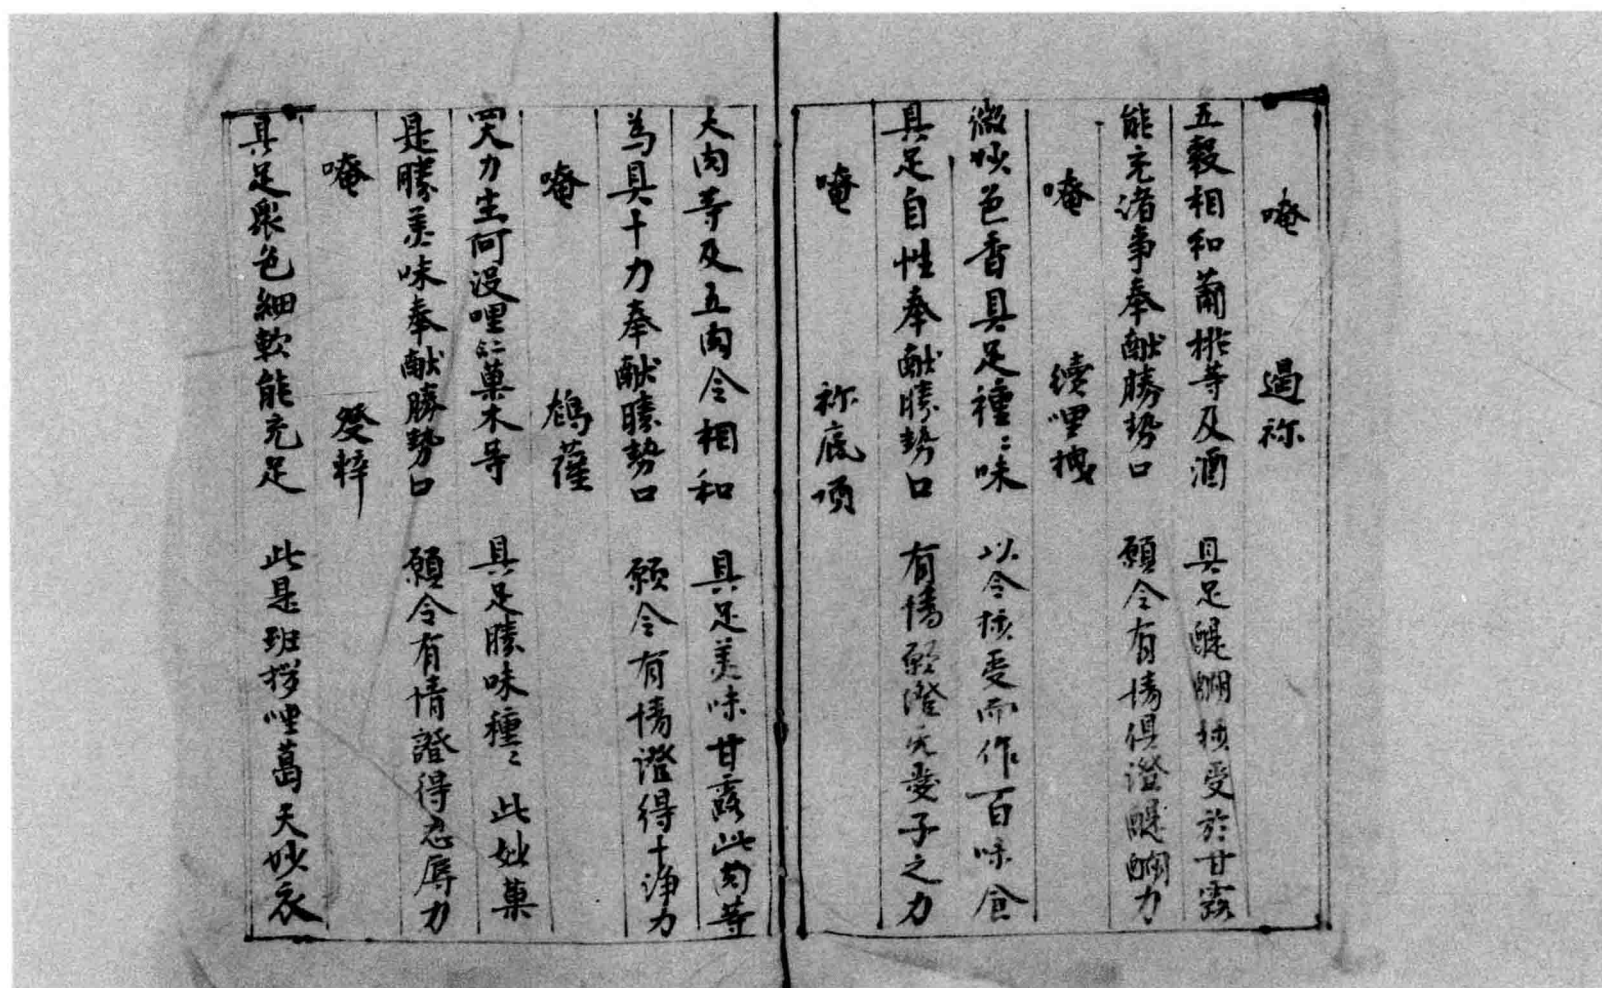 唵　過祢
五穀相和蔔桃等及酒　具足醍醐核受於甘露
能充渚事奉献勝势口　願令有情俱澄醍醐力
唵　續哩拽
微妙色香具足種〻味　以令核受而作百味食
具足自性奉献勝势口　有情願澄无憂子之力
唵　祢底项
大肉等及五肉令相和　具足美味甘露此肉等
為具十力奉献勝势口　願令有情澄得十净力
唵　鴆薩
四大力生阿没哩㘕菓木等　具足勝味種〻此妙菓
是勝美味奉献勝势口　願令有情證得忍辱力
唵　發粹
具足眾色細軟能充足　此是班拶哩葛天妙衣